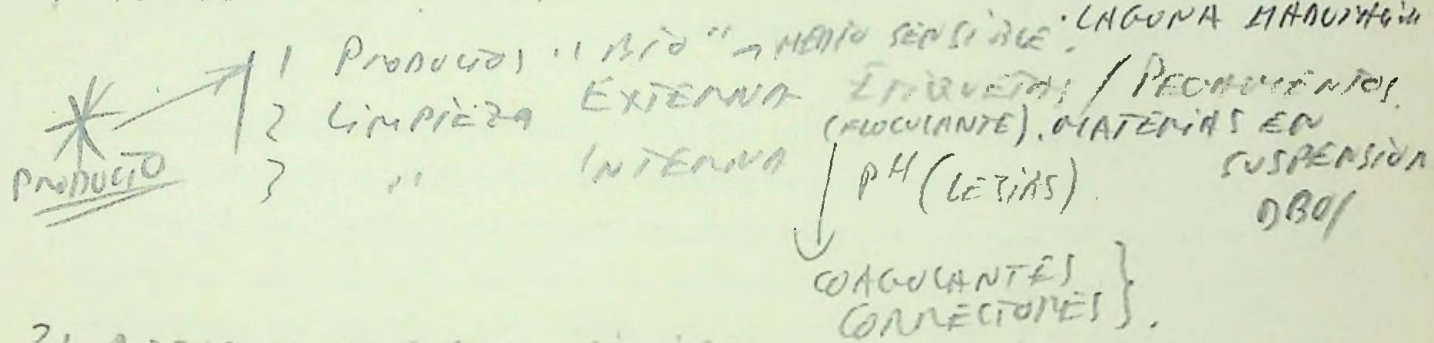 · LAGUNA
1 PRODUCTOS "BIO" → MEDIO SENSIBLE.
2 LIMPIEZA EXTERNA ETIQUETAS / PEGAMENTOS.
(FLOCULANTE). MATERIAS EN SUSPENSIÓN
3 " INTERNA PH (LEJIAS). DBO/
PRODUCTO
COAGULANTES
CORRECTORES }.